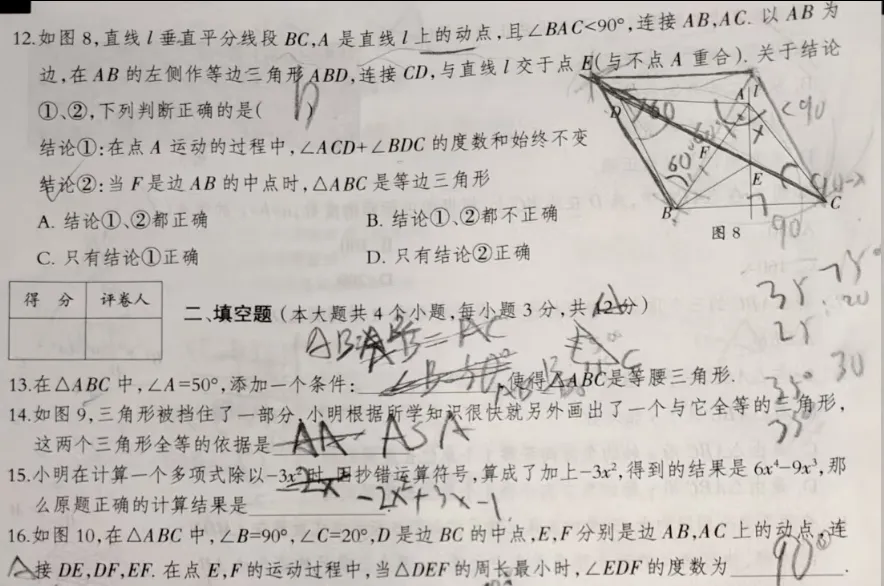 12.如图8,直线l垂直平分线段BC,A是直线l上的动点,且∠BAC<90°,连接AB,AC.以AB为
边,在AB的左侧作等边三角形ABD,连接CD,与直线l交于点E(与不点A重合).关于结论
①、②,下列判断正确的是( )
结论①:在点A运动的过程中,∠ACD+∠BDC的度数和始终不变
结论②:当F是边AB的中点时,△ABC是等边三角形
A. 结论①、②都正确
B. 结论①、②都不正确
C. 只有结论①正确
D. 只有结论②正确
A
l
D
F
E
B
C
60
60°
60°
<90
90
图8
得 分
评卷人
二、填空题(本大题共4个小题,每小题3分,共12分)
AB=AC
13.在△ABC中,∠A=50°,添加一个条件: ,使得△ABC是等腰三角形.
14.如图9,三角形被挡住了一部分,小明根据所学知识很快就另外画出了一个与它全等的三角形,
这两个三角形全等的依据是 ASA
15.小明在计算一个多项式除以-3x²时,因抄错运算符号,算成了加上-3x²,得到的结果是6x⁴-9x³,那
么原题正确的计算结果是 -2x²+3x-1
16.如图10,在△ABC中,∠B=90°,∠C=20°,D是边BC的中点,E,F分别是边AB,AC上的动点,连
接DE,DF,EF.在点E,F的运动过程中,当△DEF的周长最小时,∠EDF的度数为 90°.